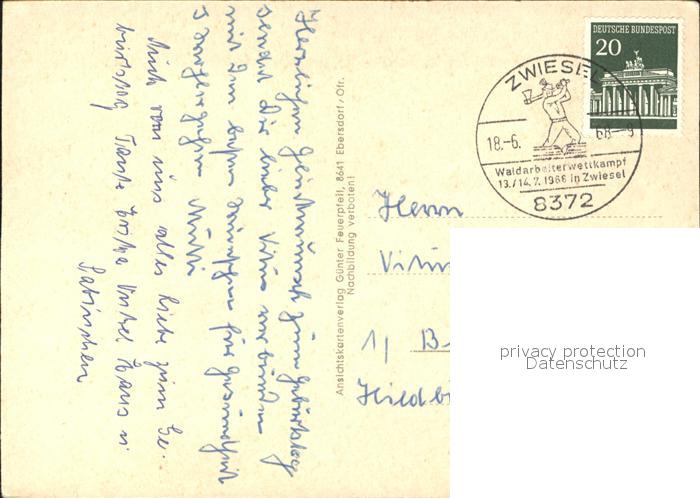 Herzlichen Glückwunsch zum Geburtstag
sendet Dir lieber Vitus verbunden
mit den besten Wünschen für Gesundheit
Mutti
Auch von uns alles Liebe zum Ge-
burtstag Tante Onkel Hans u.
Ansichtskartenverlag Günter Feuerpfeil, 8641 Ebersdorf/Ofr.
Nachbildung verboten!
DEUTSCHE BUNDESPOST
20
ZWIESEL
18.-6. 68--9
Waldarbeiterwettkampf
13./14.7.1968 in Zwiesel
8372
Herrn
1/ B
privacy protection
Datenschutz